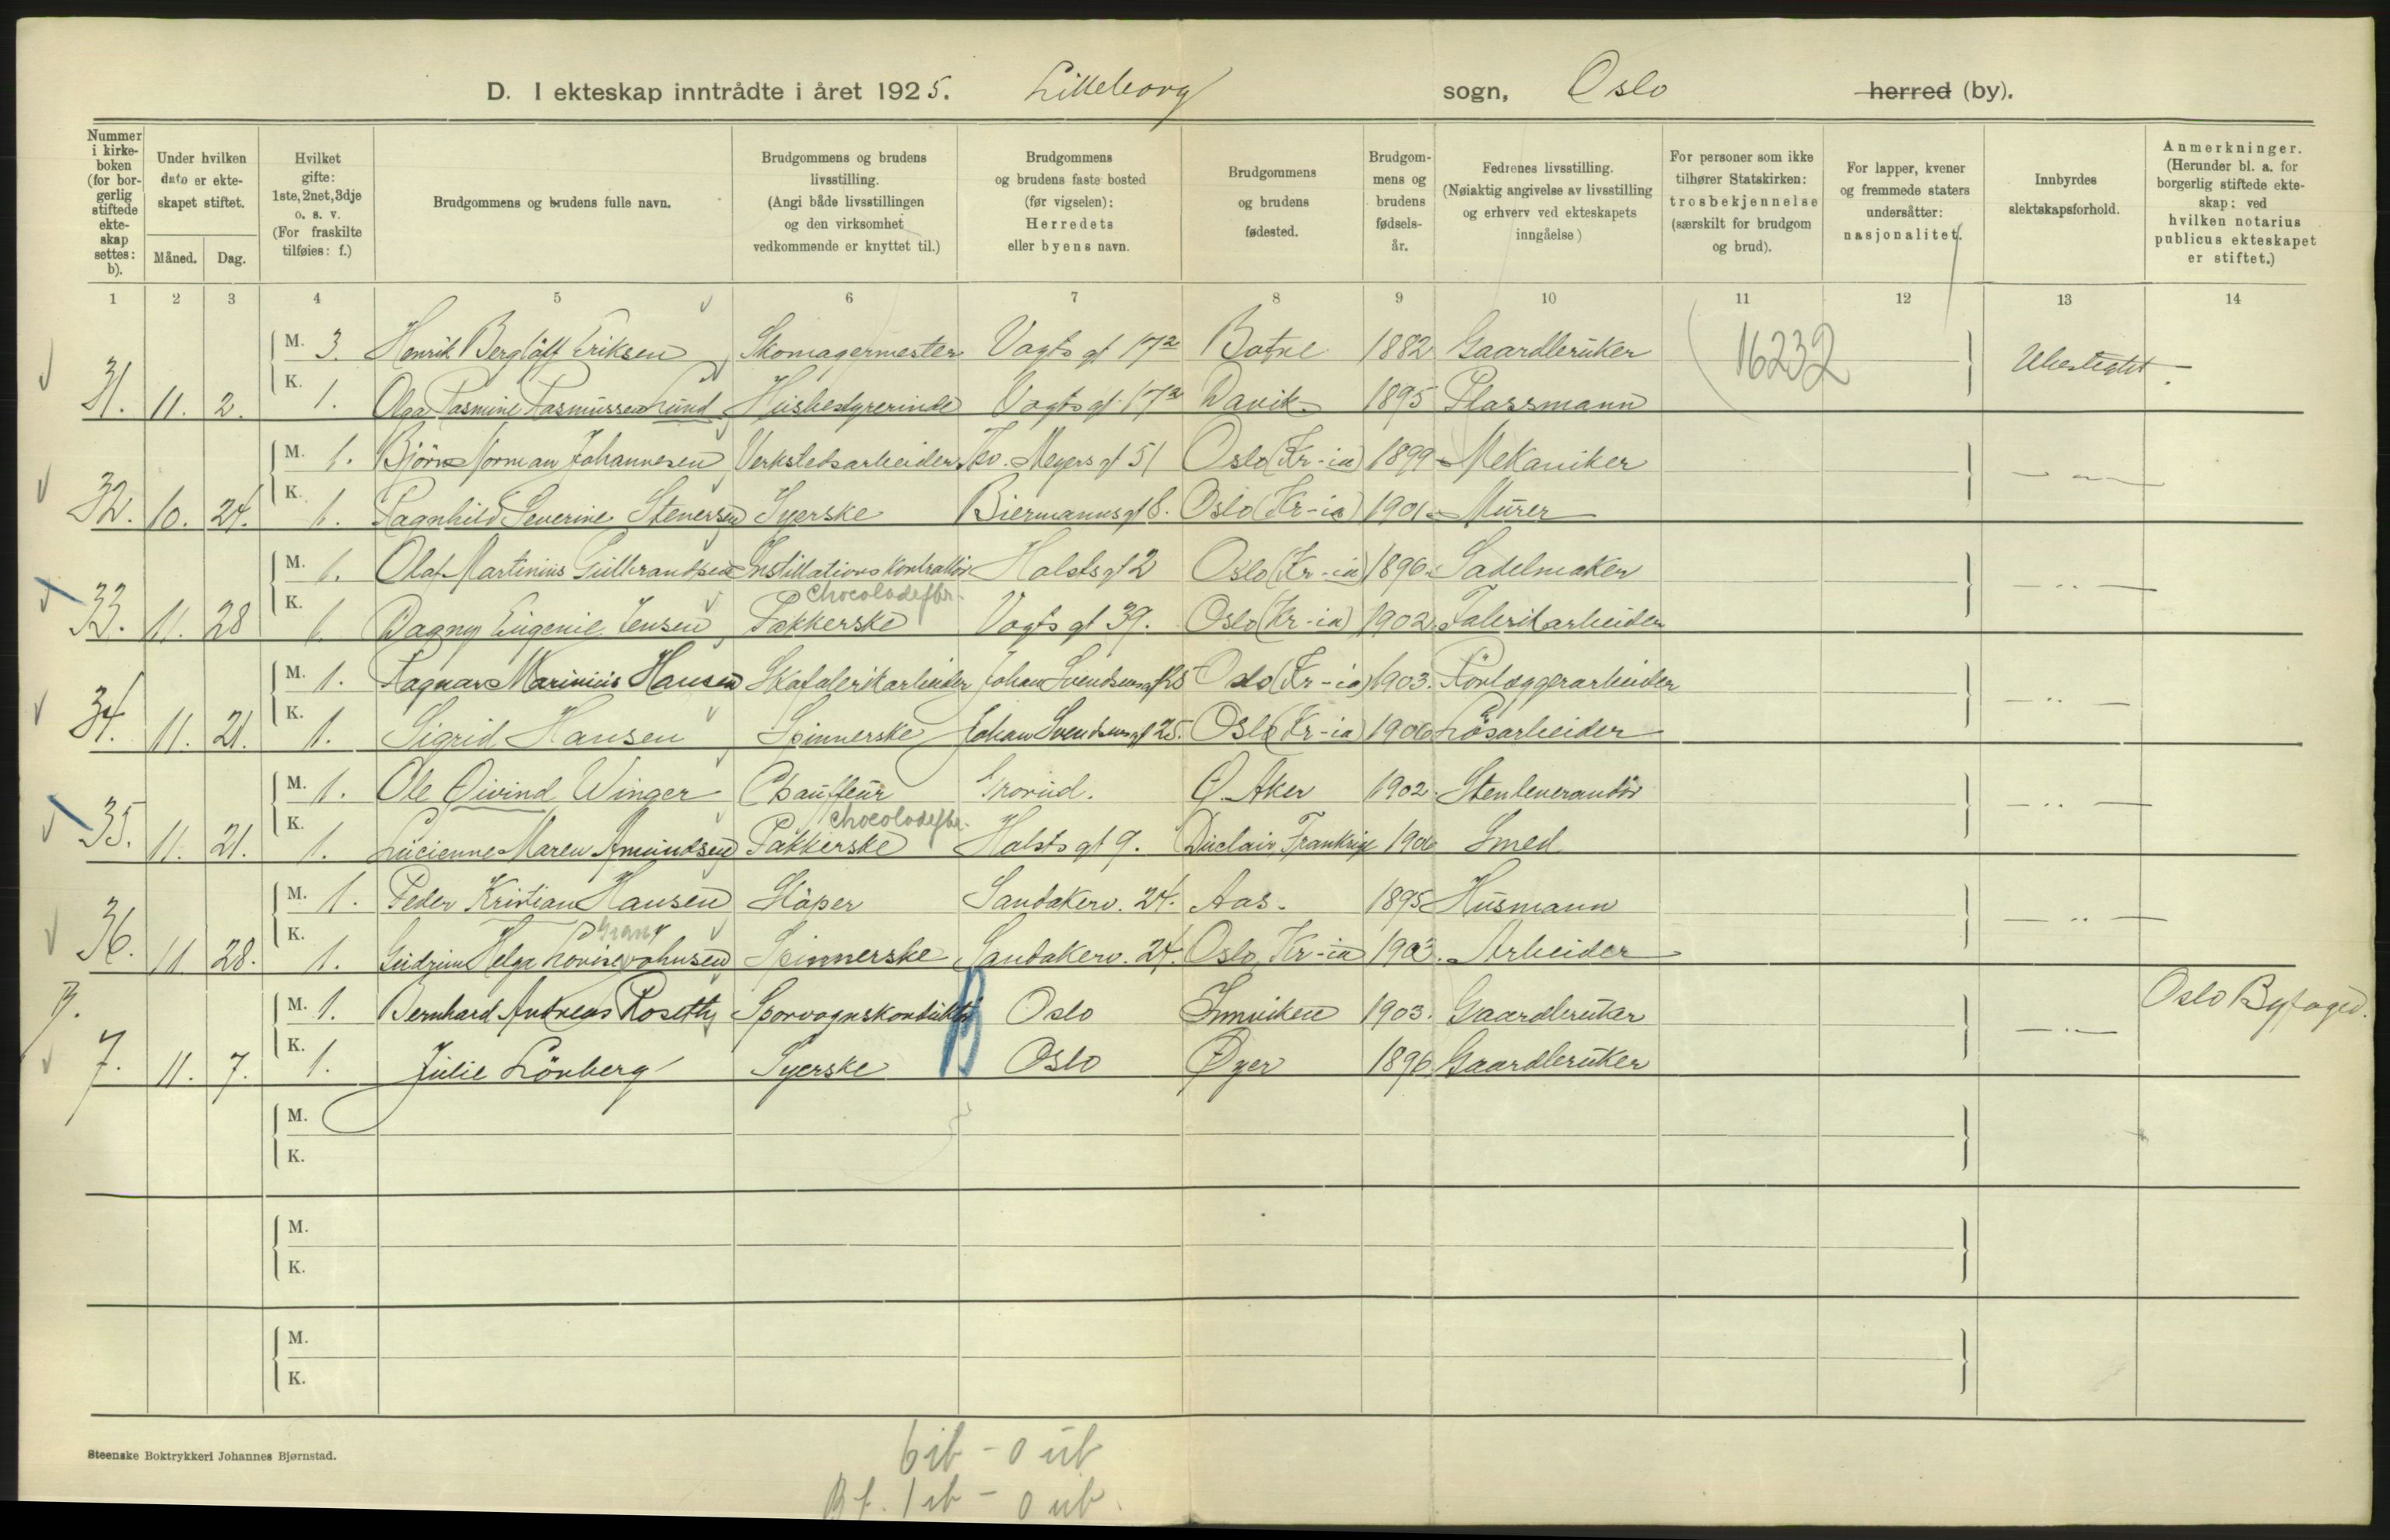 D. I ekteskap inntrådte i året 1925. Lilleborg sogn, Oslo herred (by).
Nummer i kirke-boken (for bor-gerlig stiftede ekte-skap settes: b).
Under hvilken dato er ekte-skapet stiftet.
Måned. Dag.
Hvilket gifte: 1ste, 2net, 3dje o. s. v. (For fraskilte tilføies: f.)
Brudgommens og brudens fulle navn.
Brudgommens og brudens livsstilling. (Angi både livsstillingen og den virksomhet vedkommende er knyttet til.)
Brudgommens og brudens faste bosted (før vigselen): Herredets eller byens navn.
Brudgommens og brudens fødested.
Brudgom-mens og brudens fødsels-år.
Fedrenes livsstilling. (Nøiaktig angivelse av livsstilling og erhverv ved ekteskapets inngåelse)
For personer som ikke tilhører Statskirken: trosbekjennelse (særskilt for brudgom og brud).
For lapper, kvener og fremmede staters undersåtter: nasjonalitet.
Innbyrdes slektskapsforhold.
Anmerkninger. (Herunder bl. a. for borgerlig stiftede ekte-skap: ved hvilken notarius publicus ekteskapet er stiftet.)
1 2 3 4 5 6 7 8 9 10 11 12 13 14
M. 3. Henrik Berglölf Eriksen Skomagermester Vogts gt 17a Botne 1882 Gaardbruker 16232 Ubeslegtet
31. 11. 2. K. 1. Olga Rasmine Rasmussen Lund Husbestyrerinde Vogts gt 17a Davik 1895 Plassmann
M. 1. Bjørn Norman Johannesen Verkstedsarbeider Tho. Meyers gt 51 Oslo (Kr-ia) 1899 Mekaniker
32. 10. 24. K. 1. Ragnhild Severine Stenersen Syerske Biermannsgt 8. Oslo (Kr-ia) 1901 Murer
M. 1. Olaf Martinius Gulbrandsen Instilationskontrollör Holstsgt 2 Oslo (Kr-ia) 1896 Sadelmaker
chocoladefbr.
33. 11. 28 K. 1. Dagny Eugenie Jensen Pakkerske Vogts gt 39. Oslo (Kr-ia) 1902 Fabrikarbeider
M. 1. Ragnar Marinius Hansen Skofabrikarbeider Johan Svendsensgt 25 Oslo (Kr-ia) 1903. Rörlæggerarbeider
34. 11. 21. K. 1. Sigrid Hansen Spinnerske Johan Svendsensgt 25. Oslo (Kr-ia) 1906 Lösarbeider
M. 1. Ole Øivind Winger Chauffeur Grorud. Ø. Aker 1902. Stenleverandör
chocoladefbr.
35. 11. 21. K. 1. Lucienne Maren Amundsen Pakkerske Holsts gt 9. Duclair Frankrige 1906 Smed
M. 1. Peder Kristian Hansen Støper Sandakerv. 24. Aas. 1895 Husmann
Grany
36. 11 28. K. 1. Gudrun Helga Lovise Johnsen Spinnerske Sandakerv. 24. Oslo, Kr-ia 1903. Arbeider
B. M. 1. Bernhard Andreas Roseth Sporvognskonduktør B Oslo Innviken 1903. Gaardbruker Oslo Byfoged.
7. 11. 7. K. 1. Julie Lönberg Syerske Oslo Øyer 1896 Gaardbruker
M.
K.
M.
K.
M.
K.
Steenske Boktrykkeri Johannes Bjørnstad.
6 ib - 0 ub
Bf. 1 ib - 0 ub.